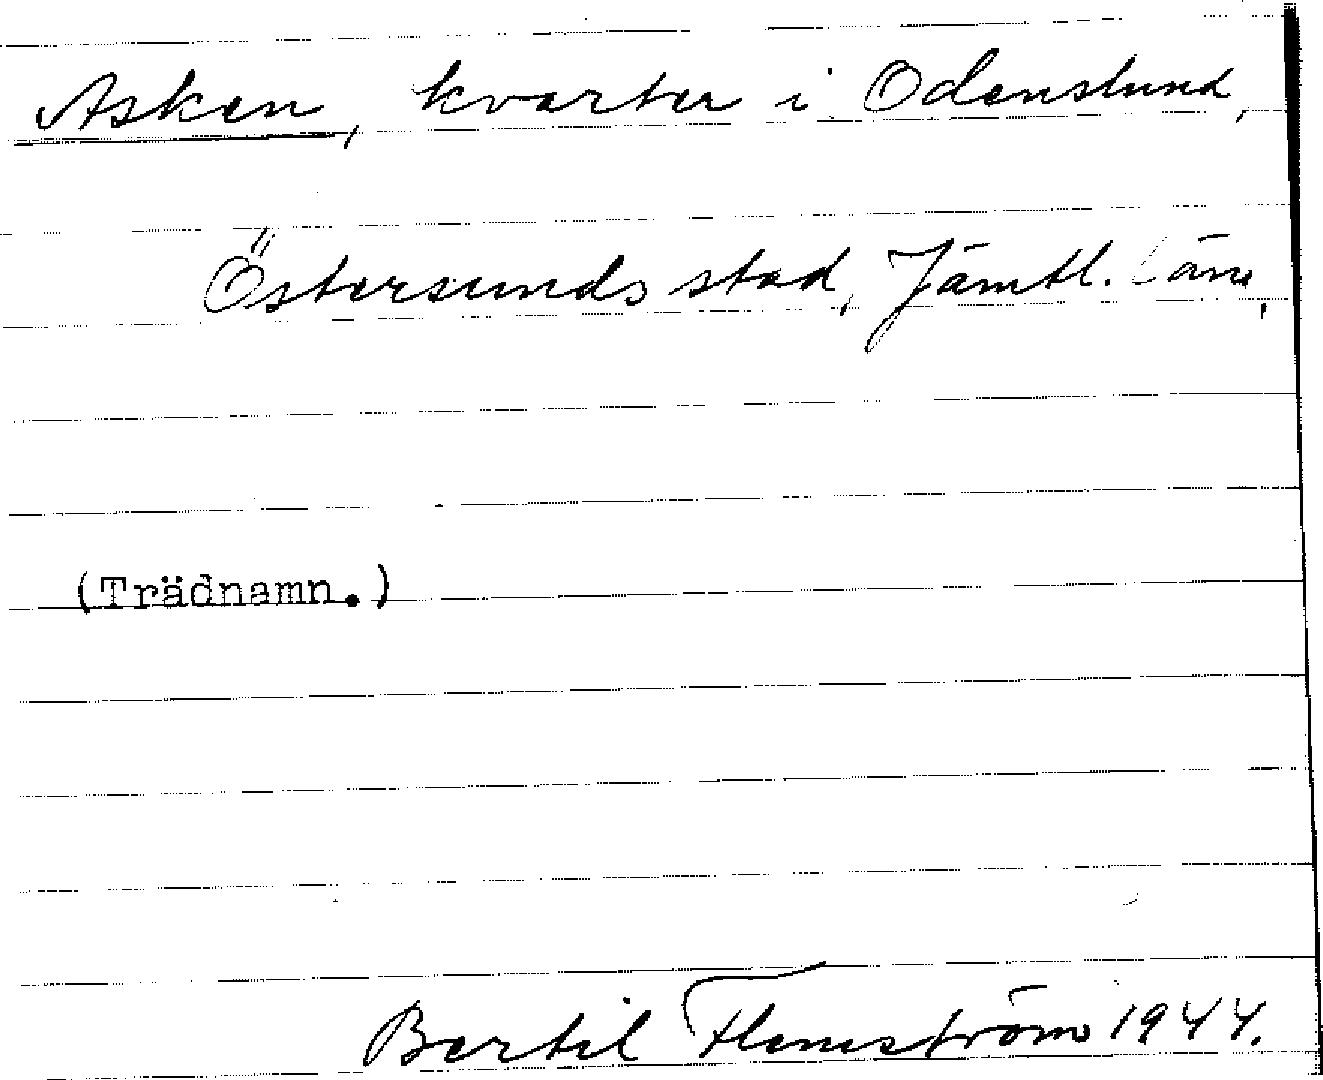 Asken, kvarter i Odenslund,
Östersunds stad, Jämtl. län.
(Trädnamn.)
Bertil Flemström 1944.